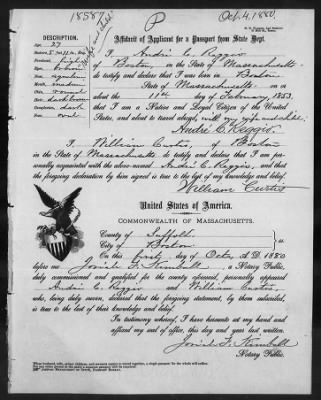 18587
P
Oct. 4, 1880.
DESCRIPTION.
Age, 27
Affidavit of Applicant for a Passport from State Dept.
I, André C. Reggio
of Boston, in the State of Massachusetts
do testify and declare that I was born in Boston
State of Massachusetts on or
about the 11th day of February 1853
that I am a Native and Loyal Citizen of the United
States, and about to travel abroad, with my wife and child.
André C. Reggio.
I, William Curtis, of Boston
in the State of Massachusetts do testify and declare that I am per-
sonally acquainted with the above named André C. Reggio, and that
the foregoing declaration by him signed is true to the best of my knowledge and belief.
William Curtis
United States of America.
COMMONWEALTH OF MASSACHUSETTS.
County of Suffolk
City of Boston } ss.
On this first day of Octr. A. D. 1880
before me Josiah F. Kimball, a Notary Public,
duly commissioned and qualified for the county aforesaid, personally appeared
André C. Reggio and William Curtis,
who, being duly sworn, declared that the foregoing statement, by them subscribed,
is true to the best of their knowledge and belief.
In testimony whereof, I have hereunto set my hand and
affixed my seal of office, this day and year last written.
Josiah F. Kimball
Notary Public.